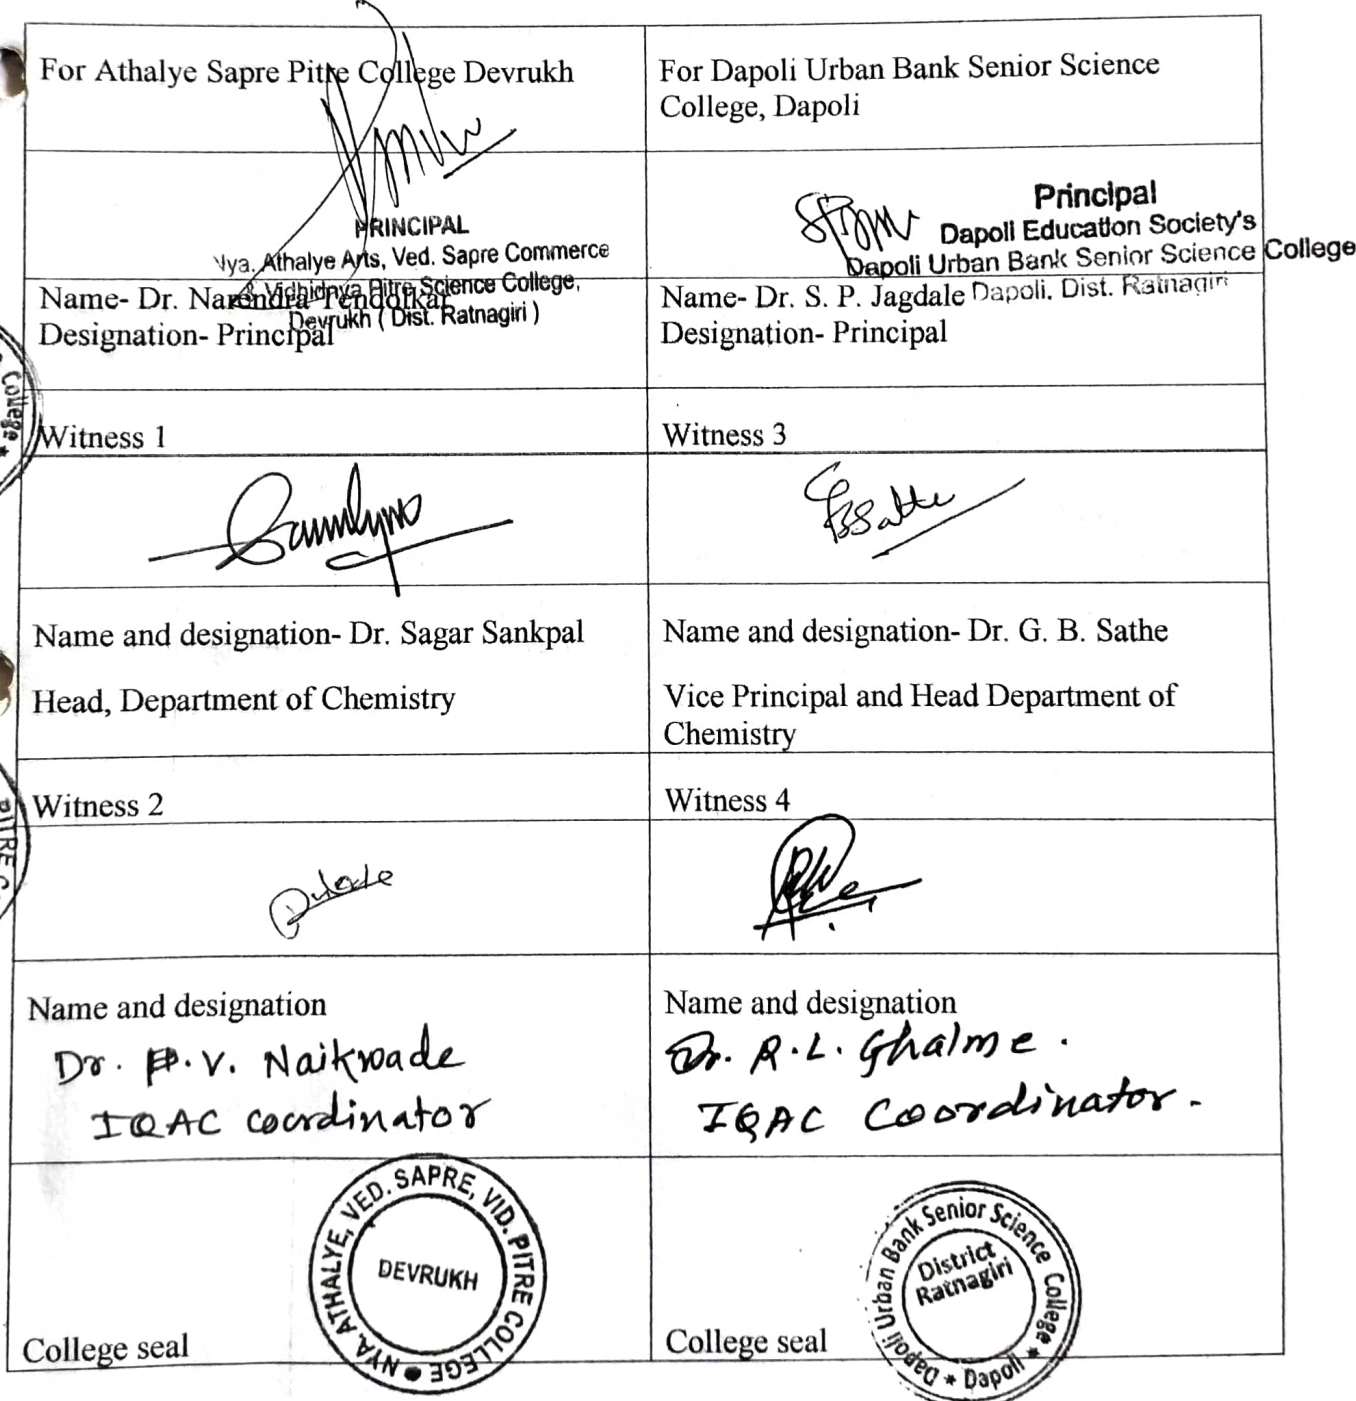 For Athalye Sapre Pitre College Devrukh
For Dapoli Urban Bank Senior Science
College, Dapoli
PRINCIPAL
Nya. Athalye Arts, Ved. Sapre Commerce
& Vidhidnya Pitre Science College,
Devrukh ( Dist. Ratnagiri )
Principal
Dapoli Education Society's
Dapoli Urban Bank Senior Science College
Dapoli. Dist. Ratnagiri
Name- Dr. Narendra Tendolkar
Designation- Principal
Name- Dr. S. P. Jagdale
Designation- Principal
Witness 1
Witness 3
GBSathe
Name and designation- Dr. Sagar Sankpal
Head, Department of Chemistry
Name and designation- Dr. G. B. Sathe
Vice Principal and Head Department of
Chemistry
Witness 2
Witness 4
Name and designation
Dr. P. V. Naikwade
IQAC coordinator
Name and designation
Dr. R. L. Ghalme.
IQAC Coordinator.
College seal
NYA. ATHALYE, VED. SAPRE, VID. PITRE COLLEGE
DEVRUKH
College seal
Dapoli Urban Bank Senior Science College * Dapoli *
District
Ratnagiri
College *
PITRE C